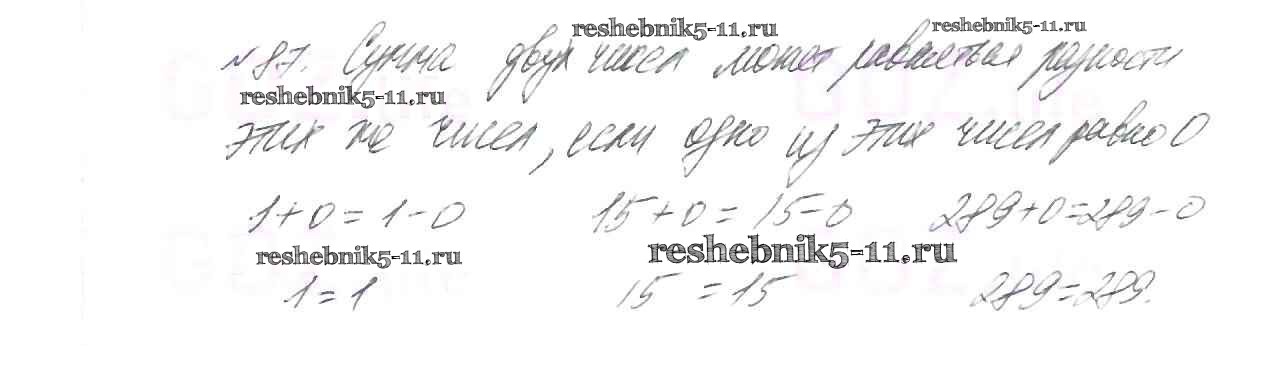 reshebnik5-11.ru
reshebnik5-11.ru
№87. Сумма двух чисел может равняться разности
reshebnik5-11.ru
этих же чисел, если одно из этих чисел равно 0
1+0=1-0 15+0=15-0 289+0=289-0
reshebnik5-11.ru
reshebnik5-11.ru
1=1 15=15 289=289.